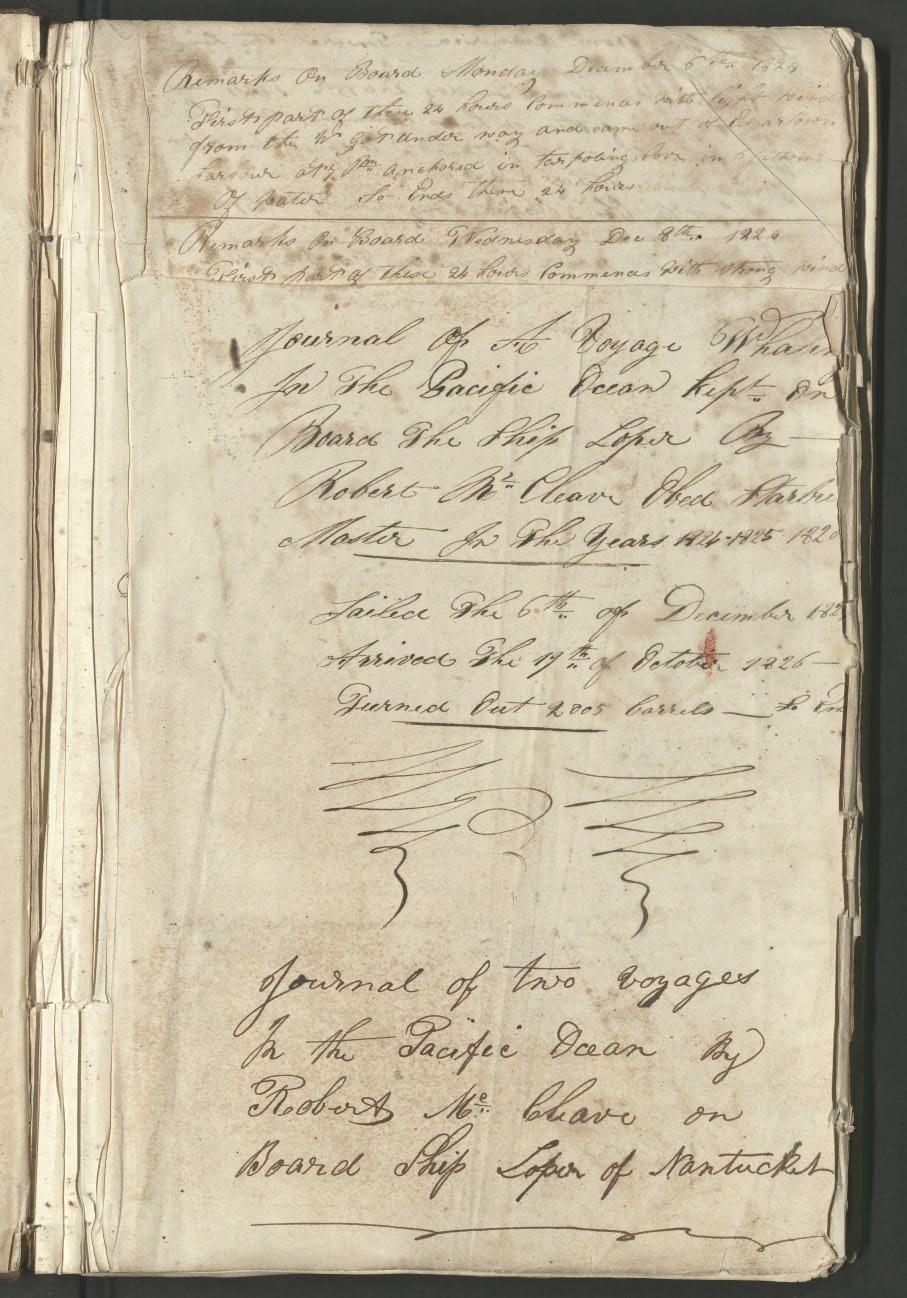 Remarks On Board Monday December 6th 1824
First part of these 24 hours Commences with light wind
from the W got under way and came out of Edgartown
harbour at 7 pm anchored in tarpoling Cove in fathom
Of water So Ends these 24 hours
Remarks On Board Wednesday Dec 8th 1824
First part of these 24 hours Commences With strong wind
Journal Of A Voyage Whalin
In The Pacific Ocean Kept On
Board The Ship Loper By —
Robert Mc Cleave Obed Starbu
Master In The Years 1824-1825 182
Sailed The 6th of December 182
Arrived The 19th of October 1826 —
Turned Out 2005 barrels — So En
Journal of two Voyages
In the Pacific Ocean By
Robert Mc Cleave on
Board Ship Loper of Nantucket